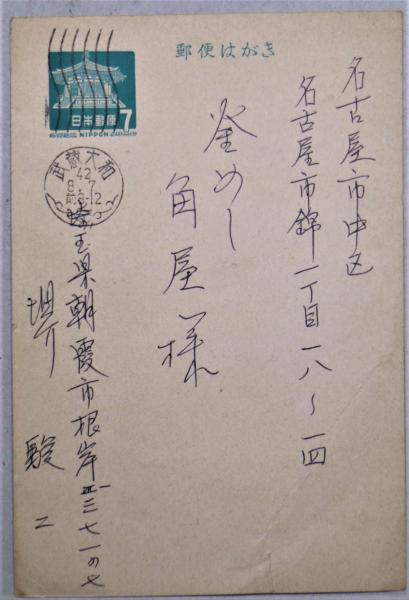 郵便はがき
日本郵便
7
NIPPON
武蔵大和
42
8 7
前8-12
名古屋市中区
名古屋市錦一丁目一八〜一四
釜めし
角屋様
埼玉県朝霞市根岸三七一の七
堺 駿二